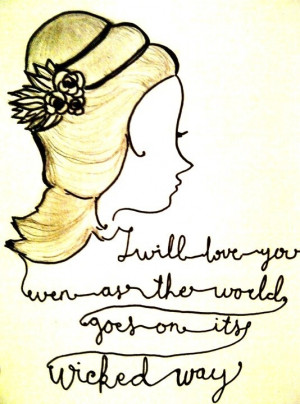 I will love you
even as the world
goes on its
wicked way